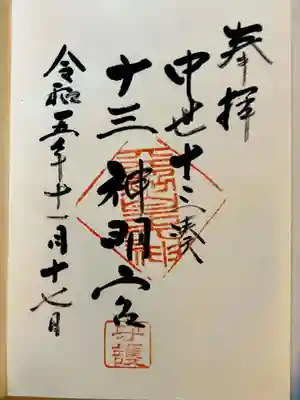 奉拝
中世十三湊
十三神明宮
令和五年十一月十七日
守護